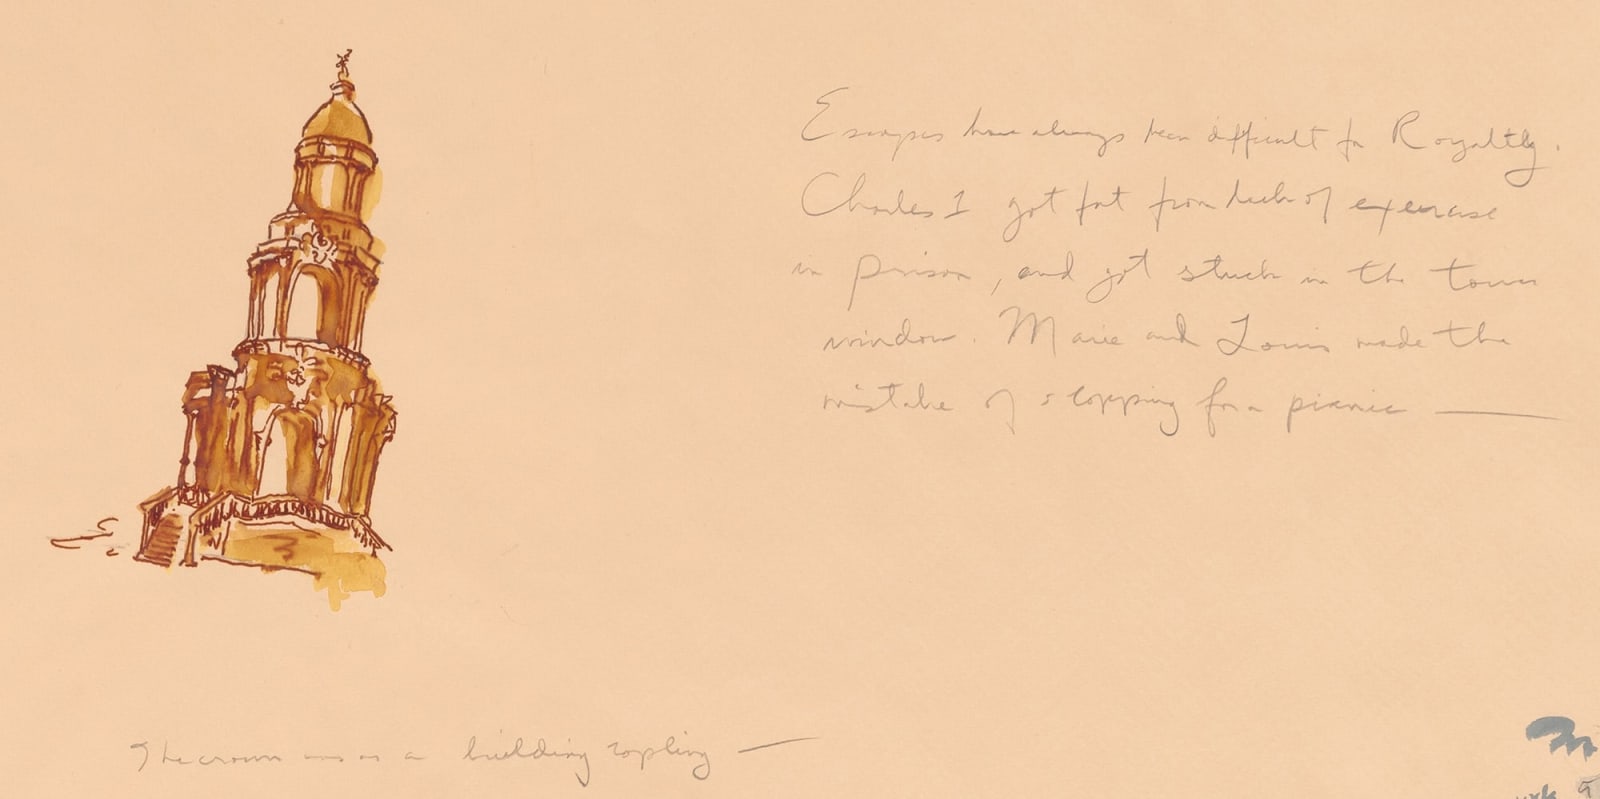 Escapes have always been difficult for Royaltly.
Charles 1 got fat from lack of exercise
in prison, and got stuck in the tower
window. Marie and Louis made the
mistake of stopping for a picnic —
The crown was as a building topling —